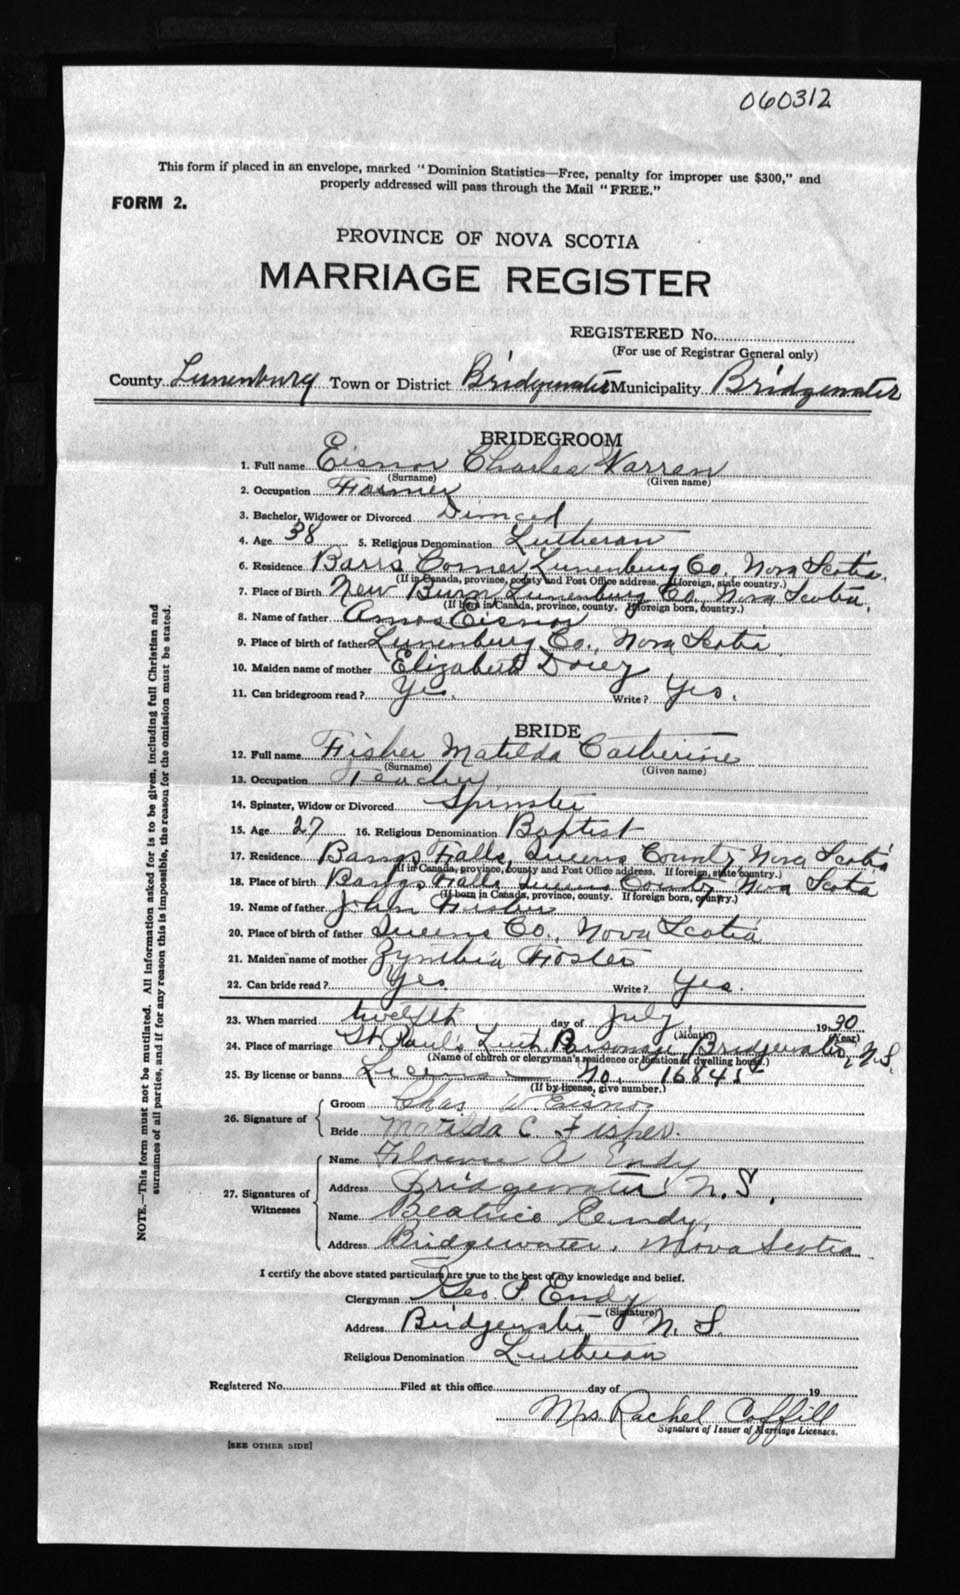 060312
This form if placed in an envelope, marked "Dominion Statistics—Free, penalty for improper use $300," and
properly addressed will pass through the Mail "FREE."
FORM 2.
PROVINCE OF NOVA SCOTIA
MARRIAGE REGISTER
REGISTERED No.
(For use of Registrar General only)
County Lunenburg Town or District Bridgewater Municipality Bridgewater
BRIDEGROOM
1. Full name Eisnor Charles Warren
(Surname) (Given name)
2. Occupation Farmer
3. Bachelor, Widower or Divorced Divorced
4. Age 38 5. Religious Denomination Lutheran
6. Residence Barss Corner Lunenburg Co., Nova Scotia.
(If in Canada, province, county and Post Office address. If foreign, state country.)
7. Place of Birth New Burn Lunenburg Co. Nova Scotia.
(If born in Canada, province, county. If foreign born, country.)
8. Name of father Amos Eisnor
9. Place of birth of father Lunenburg Co., Nova Scotia
10. Maiden name of mother Elizabeth Dorey
11. Can bridegroom read? Yes. Write? Yes.
BRIDE
12. Full name Fisher Matilda Catherine
(Surname) (Given name)
13. Occupation Teacher
14. Spinster, Widow or Divorced Spinster
15. Age 27 16. Religious Denomination Baptist
17. Residence Bangs Falls, Queens County, Nova Scotia
(If in Canada, province, county and Post Office address. If foreign, state country.)
18. Place of birth Bangs Falls Queens County Nova Scotia
(If born in Canada, province, county. If foreign born, country.)
19. Name of father John Fisher
20. Place of birth of father Queens Co., Nova Scotia
21. Maiden name of mother Zynthia Foster
22. Can bride read? Yes. Write? Yes.
23. When married twelfth day of July 1930
(Month) (Year)
24. Place of marriage St. Paul's Luth. Parsonage, Bridgewater, N.S.
(Name of church or clergyman's residence or location of dwelling house.)
25. By license or banns License No. 16845
(If by license, give number.)
26. Signature of
Groom Chas W. Eisnor
Bride Matilda C. Fisher.
27. Signatures of Witnesses
Name Florence A Endy
Address Bridgewater N.S.
Name Beatrice Endy,
Address Bridgewater, Nova Scotia
I certify the above stated particulars are true to the best of my knowledge and belief.
Clergyman Geo. P. Endy
(Signature)
Address Bridgewater N. S.
Religious Denomination Lutheran
Registered No. Filed at this office day of 19
Mrs. Rachel Coffill
Signature of Issuer of Marriage Licenses.
[SEE OTHER SIDE]
NOTE.—This form must not be mutilated. All information asked for is to be given, including full Christian and
surnames of all parties, and if for any reason this is impossible, the reason for the omission must be stated.